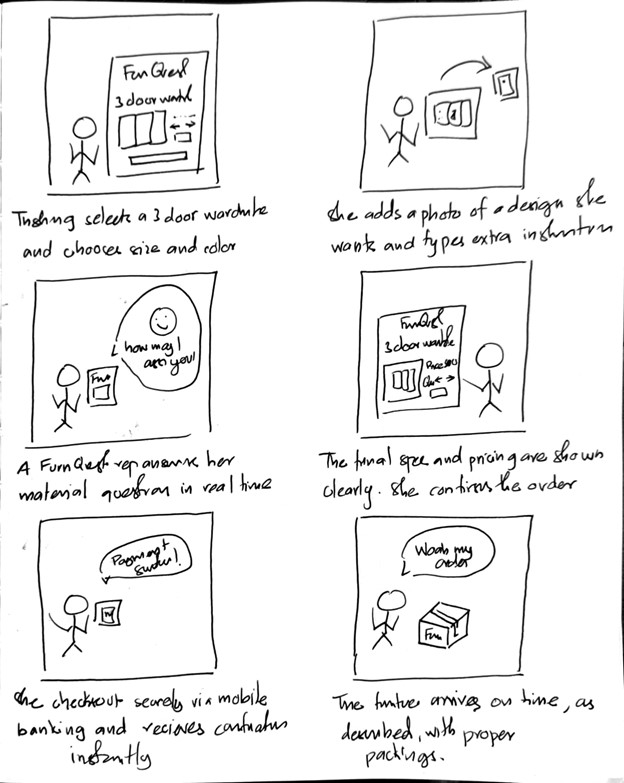 FurnQuest
3 door wardrobe
selects a 3 door wardrobe
and chooses size and color
She adds a photo of a design she
wants and types extra instruction
how may I
assist you!
Furn
A FurnQuest rep answers her
material question in real time
FurnQuest
3 door wardrobe
Price
The final spec and pricing are shown
clearly. She confirms the order
Payment
Success!
She checkout securely via mobile
banking and recieves confirmation
instantly
Woah my
order
Furn
The furniture arrives on time, as
described, with proper
packings.